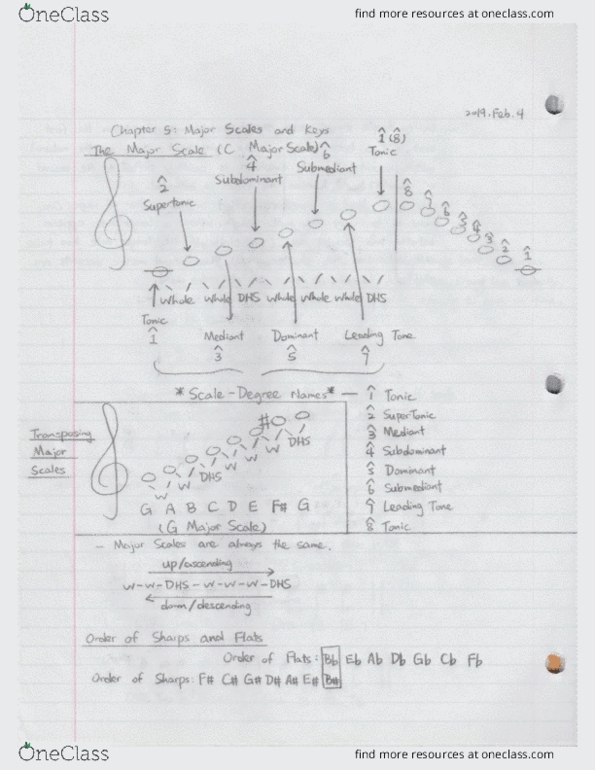 OneClass find more resources at oneclass.com
2019. Feb. 4
Chapter 5: Major Scales and Keys
The Major Scale (C Major Scale)
1̂ (8̂)
Tonic
6̂
Submediant
4̂
Subdominant
2̂
Supertonic
8̂ 7̂ 6̂ 5̂ 4̂ 3̂ 2̂ 1̂
Whole Whole DHS Whole Whole Whole DHS
Tonic
1̂
Mediant Dominant Leading Tone
3̂ 5̂ 7̂
*Scale-Degree Names* — 1̂ Tonic
2̂ SuperTonic
3̂ Mediant
4̂ Subdominant
5̂ Dominant
6̂ Submediant
7̂ Leading Tone
8̂ Tonic
Transposing
Major
Scales
#
W W DHS W W W DHS
G A B C D E F# G
(G Major Scale)
- Major Scales are always the same.
up/ascending
W-W-DHS-W-W-W-DHS
down/descending
Order of Sharps and Flats
Order of Flats: Bb Eb Ab Db Gb Cb Fb
Order of Sharps: F# C# G# D# A# E# B#
OneClass find more resources at oneclass.com